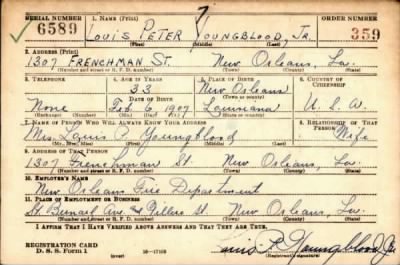 SERIAL NUMBER 1. NAME (Print) ORDER NUMBER
6589 LOUIS PETER YOUNGBLOOD, JR. 359
(First) (Middle) (Last)
2. ADDRESS (Print)
1307 FRENCHMAN ST. NEW ORLEANS, LA.
(Number and street or R. F. D. number) (Town) (County) (State)
3. TELEPHONE 4. AGE IN YEARS 5. PLACE OF BIRTH 6. COUNTRY OF CITIZENSHIP
33 New Orleans
DATE OF BIRTH (Town or county)
None Feb. 6 1907 Louisiana U. S. A.
(Exchange) (Number) (Mo.) (Day) (Yr.) (State or country)
7. NAME OF PERSON WHO WILL ALWAYS KNOW YOUR ADDRESS 8. RELATIONSHIP OF THAT PERSON
Mrs. Louis P. Youngblood Wife
(Mr., Mrs., Miss) (First) (Middle) (Last)
9. ADDRESS OF THAT PERSON
1307 Frenchman St. New Orleans, La.
(Number and street or R. F. D. number) (Town) (County) (State)
10. EMPLOYER'S NAME
New Orleans Fire Department
11. PLACE OF EMPLOYMENT OR BUSINESS
St. Bernard Ave. & Villere St. New Orleans, La.
(Number and street or R. F. D. number) (Town) (County) (State)
I AFFIRM THAT I HAVE VERIFIED ABOVE ANSWERS AND THAT THEY ARE TRUE.
REGISTRATION CARD
D. S. S. Form 1 (over) 16—17105 Louis P. Youngblood Jr.
(Registrant's signature)